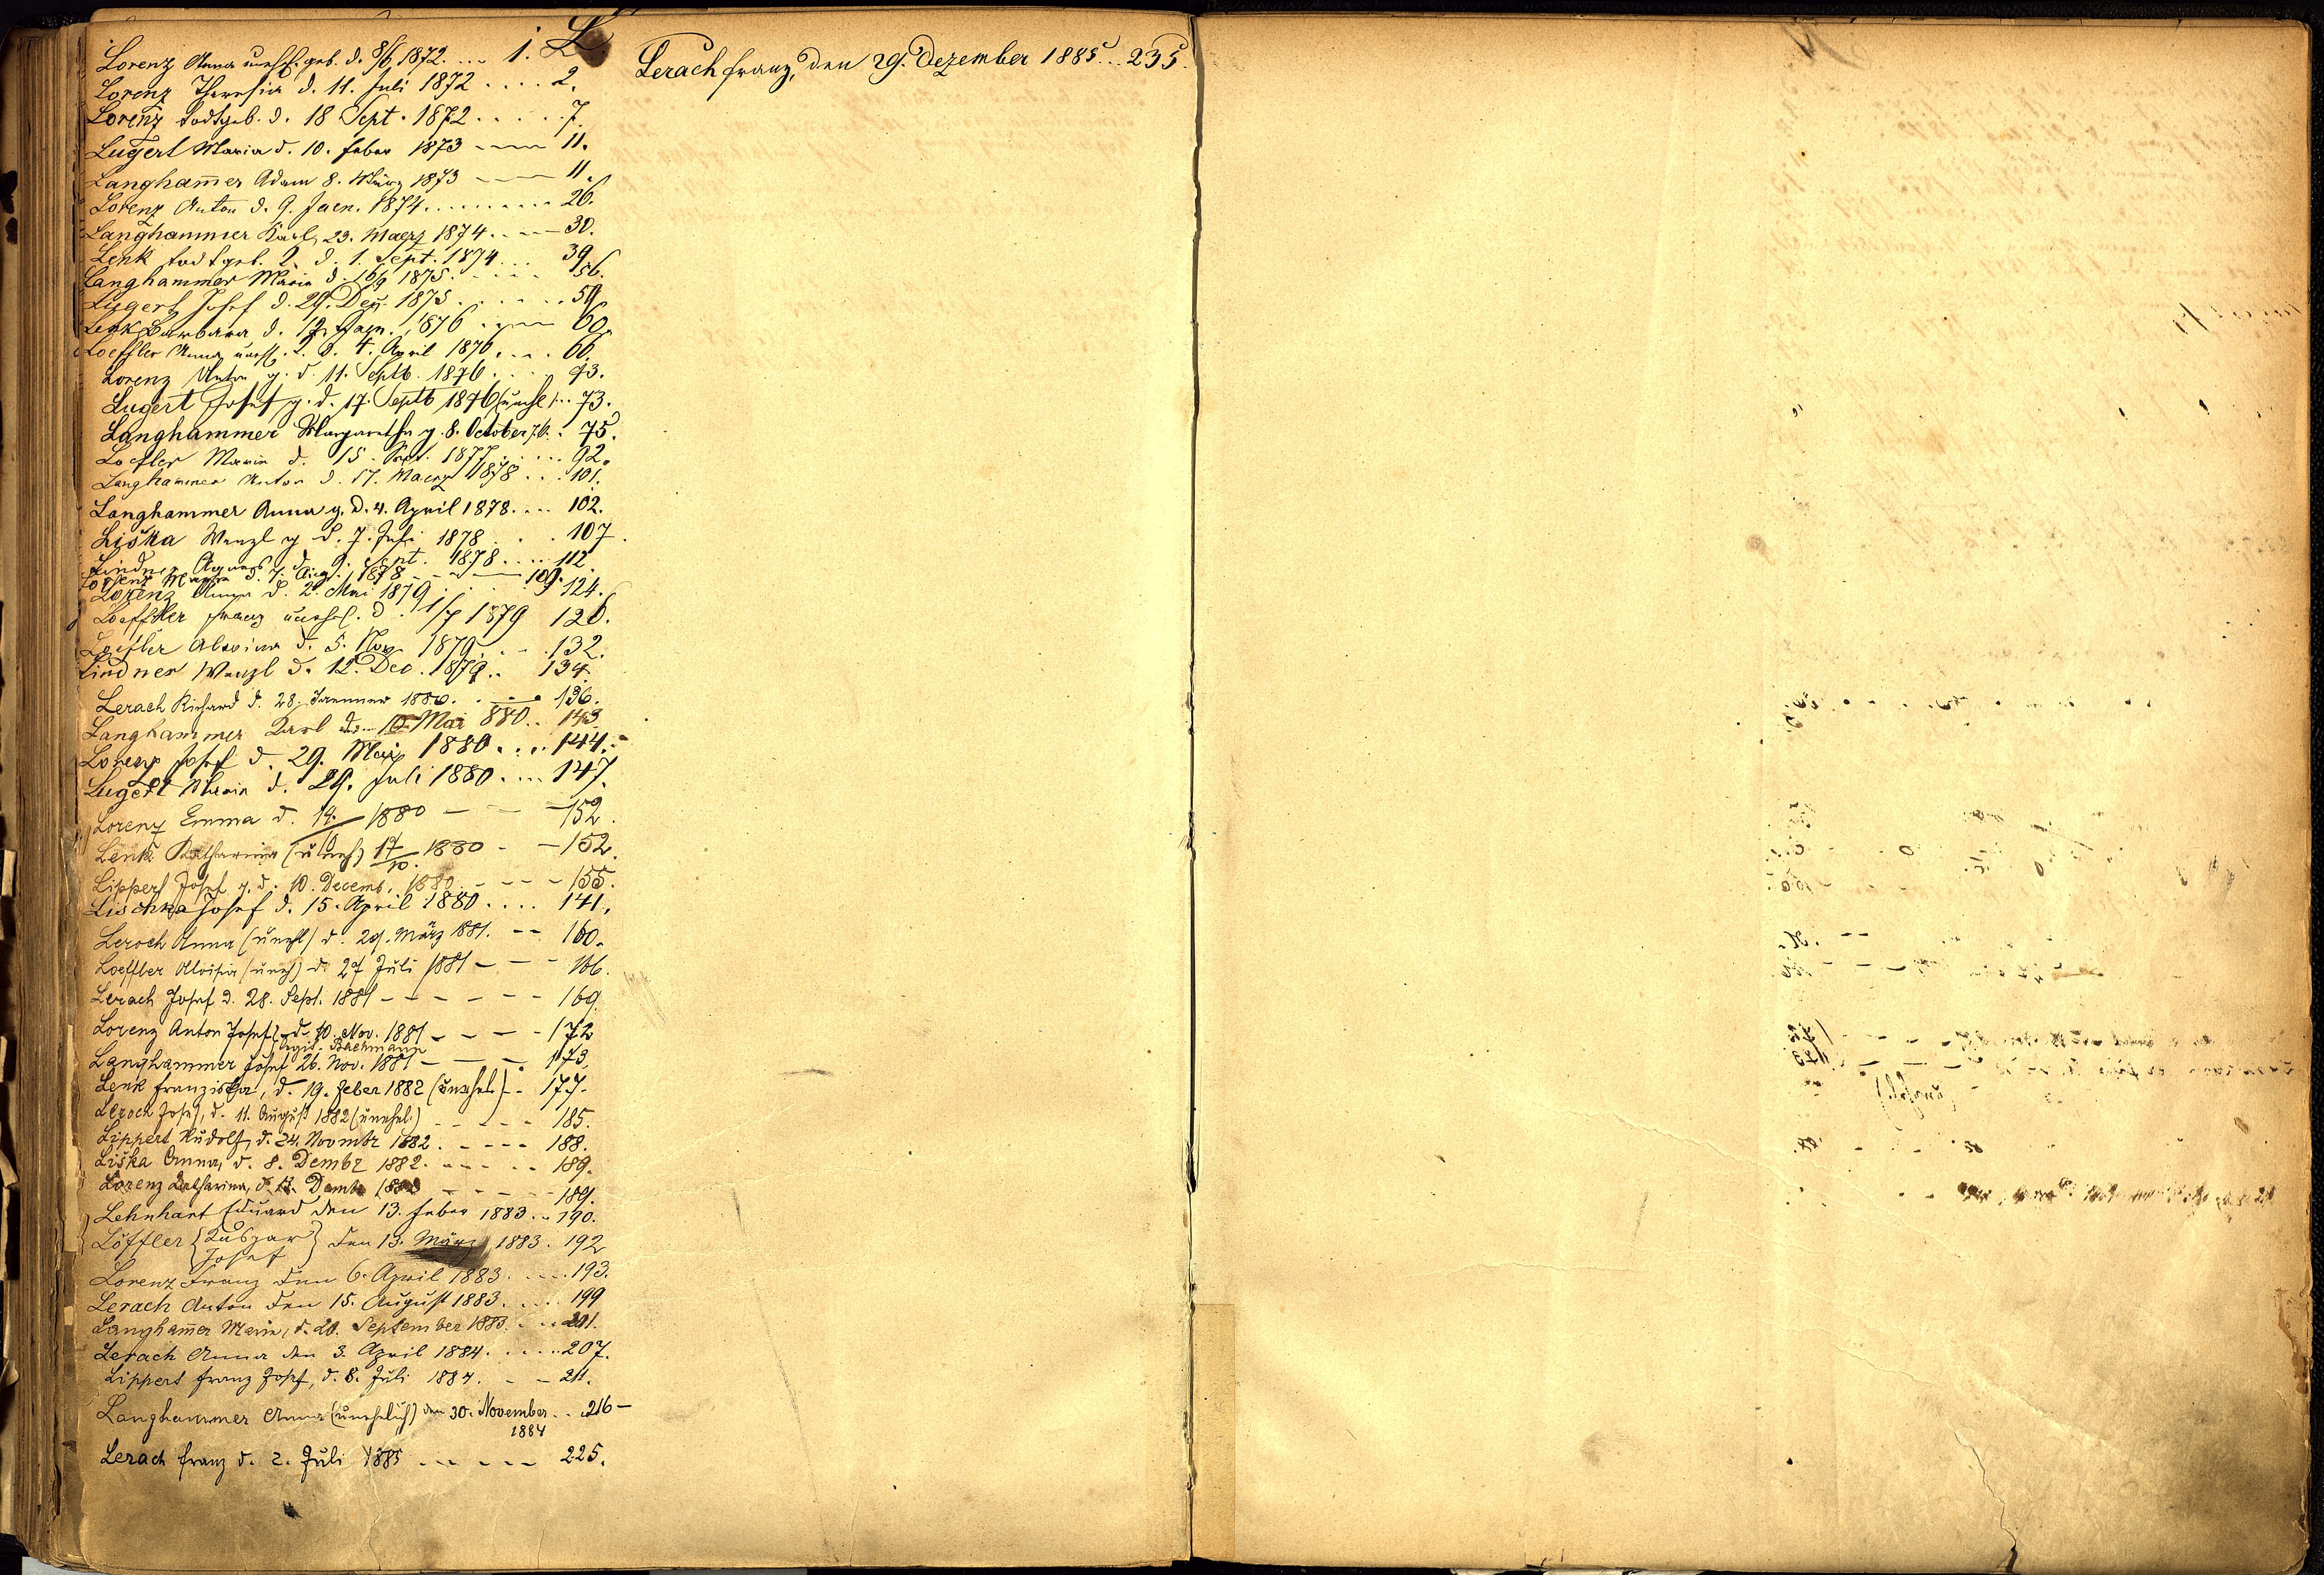 L.
Lorenz Anna unehl. geb. d. 8/6 1872. ... 1.
Lorenz Theresia d. 11. Juli 1872 .... 2.
Lorenz todtgeb. d. 18 Sept. 1872 ..... 7.
Lugert Maria d. 10. Feber 1873 ---- 11.
Langham̄er Adam 8. März 1873 --- 11.
Lorenz Anton d. 9. Jaen. 1874 ......... 26.
Langhammer Karl, 23. Maerz 1874. .. -- 30.
Lenk todtgeb. d. 1. Sept. 1874 ... 39.
Langhammer Maria d. 16/9 1875. .... 56.
Lugert Josef d. 29. Dez. 1875 ...... 59.
Lenk Barbara d. 12. Jaen. 1876 .. -- 60.
Loeffler Anna unehl. d. 4. April 1876. .. . 66.
Lorenz Anton g. d. 11. Septb. 1876. ... 73.
Lugert Josef g. d. 17. Septb 1876 (unehl) .. 73.
Langhammer Margaretha g. 8. October 76. . 75.
Loefler Maria d. 15. Sept. 1877 ..... 92.
Langhammer Anton d. 17. Maerz 1878 ... 101.
Langhammer Anna g. d. 4. April 1878. ... 102.
Liška Wenzl g d. 7. Juli 1878 . . . 107.
Lindner Agnes d. 9. Sept. 1878 .... 112.
Lorenz d. 7. Aug. 1878 ---- 109.
Lorenz Anna d. 2. Mai 1879 .... 124.
Loeffler Franz unehel. d. 1/7 1879 126.
Loefler d. 5. Nov. 1879. .. . 132.
Lindner Wenzl d. 12. Dec. 1879 .. 134.
Lerach Richard d. 28. Jaenner 1880. .. 136.
Langhammer Karl den 10. Mai 880 .. 143.
Lorenz Josef d. 29. Mai 1880 .... 144.
Lugert Maria d. 29. Juli 1880 .... 147.
Lorenz Emma d. 14./10 1880 - - - 152.
Lenk Katharina (uneh) 17/10. 1880 - - 152.
Lippert Josef g. d. 10. Decemb. 1880. - - - 155.
Lischka Josef d. 15. April 1880 .... 141.
Leroch Anna (unehl) d. 29. März 1881. -- 160.
Loeffler Aloisia (uneh) d. 27 Juli 1881 - - - 166.
Lerach Josef d. 28. Sept. 1881 - - - - - - 169.
Lorenz Anton Josef d. 10. Nov. 1881 - - - - 172
Bachmann
Langhammer Josef 26. Nov. 1881 - - - 173.
Lenk Franziska, d. 19. Feber 1882 (unehel.) - - 177.
Leroch Josef, d. 11. August 1882 (unehel.) - - - - - 185.
Lippert Rudolf, d. 24. Novmbr 1882. - - - - 188.
Liška Anna, d. 8. Dembr 1882. - - - - - 189.
Lorenz Katharina, d. Dembr - - - - - 189.
Lehnhart Eduard den 13. Feber 1883 .. 190.
Löffler { Kaspar } den 13. März 1883. 192
Josef
Lorenz Franz den 6. April 1883. .... 193.
Lerach Anton den 15. August 1883. .... 199
Langham̄er Marie, d. 20. September 1883. ... 201.
Lerach Anna den 3. April 1884. ..... 207.
Lippert Franz Josef, d. 8. Juli 1884. - - 211.
Langhammer Anna (unehelich) den 30. November . . 216 -
1884
Lerach Franz d. 2. Juli 1885 ... - - - 225.
Lerach Franz, den 29. Dezember 1885 ... 235.